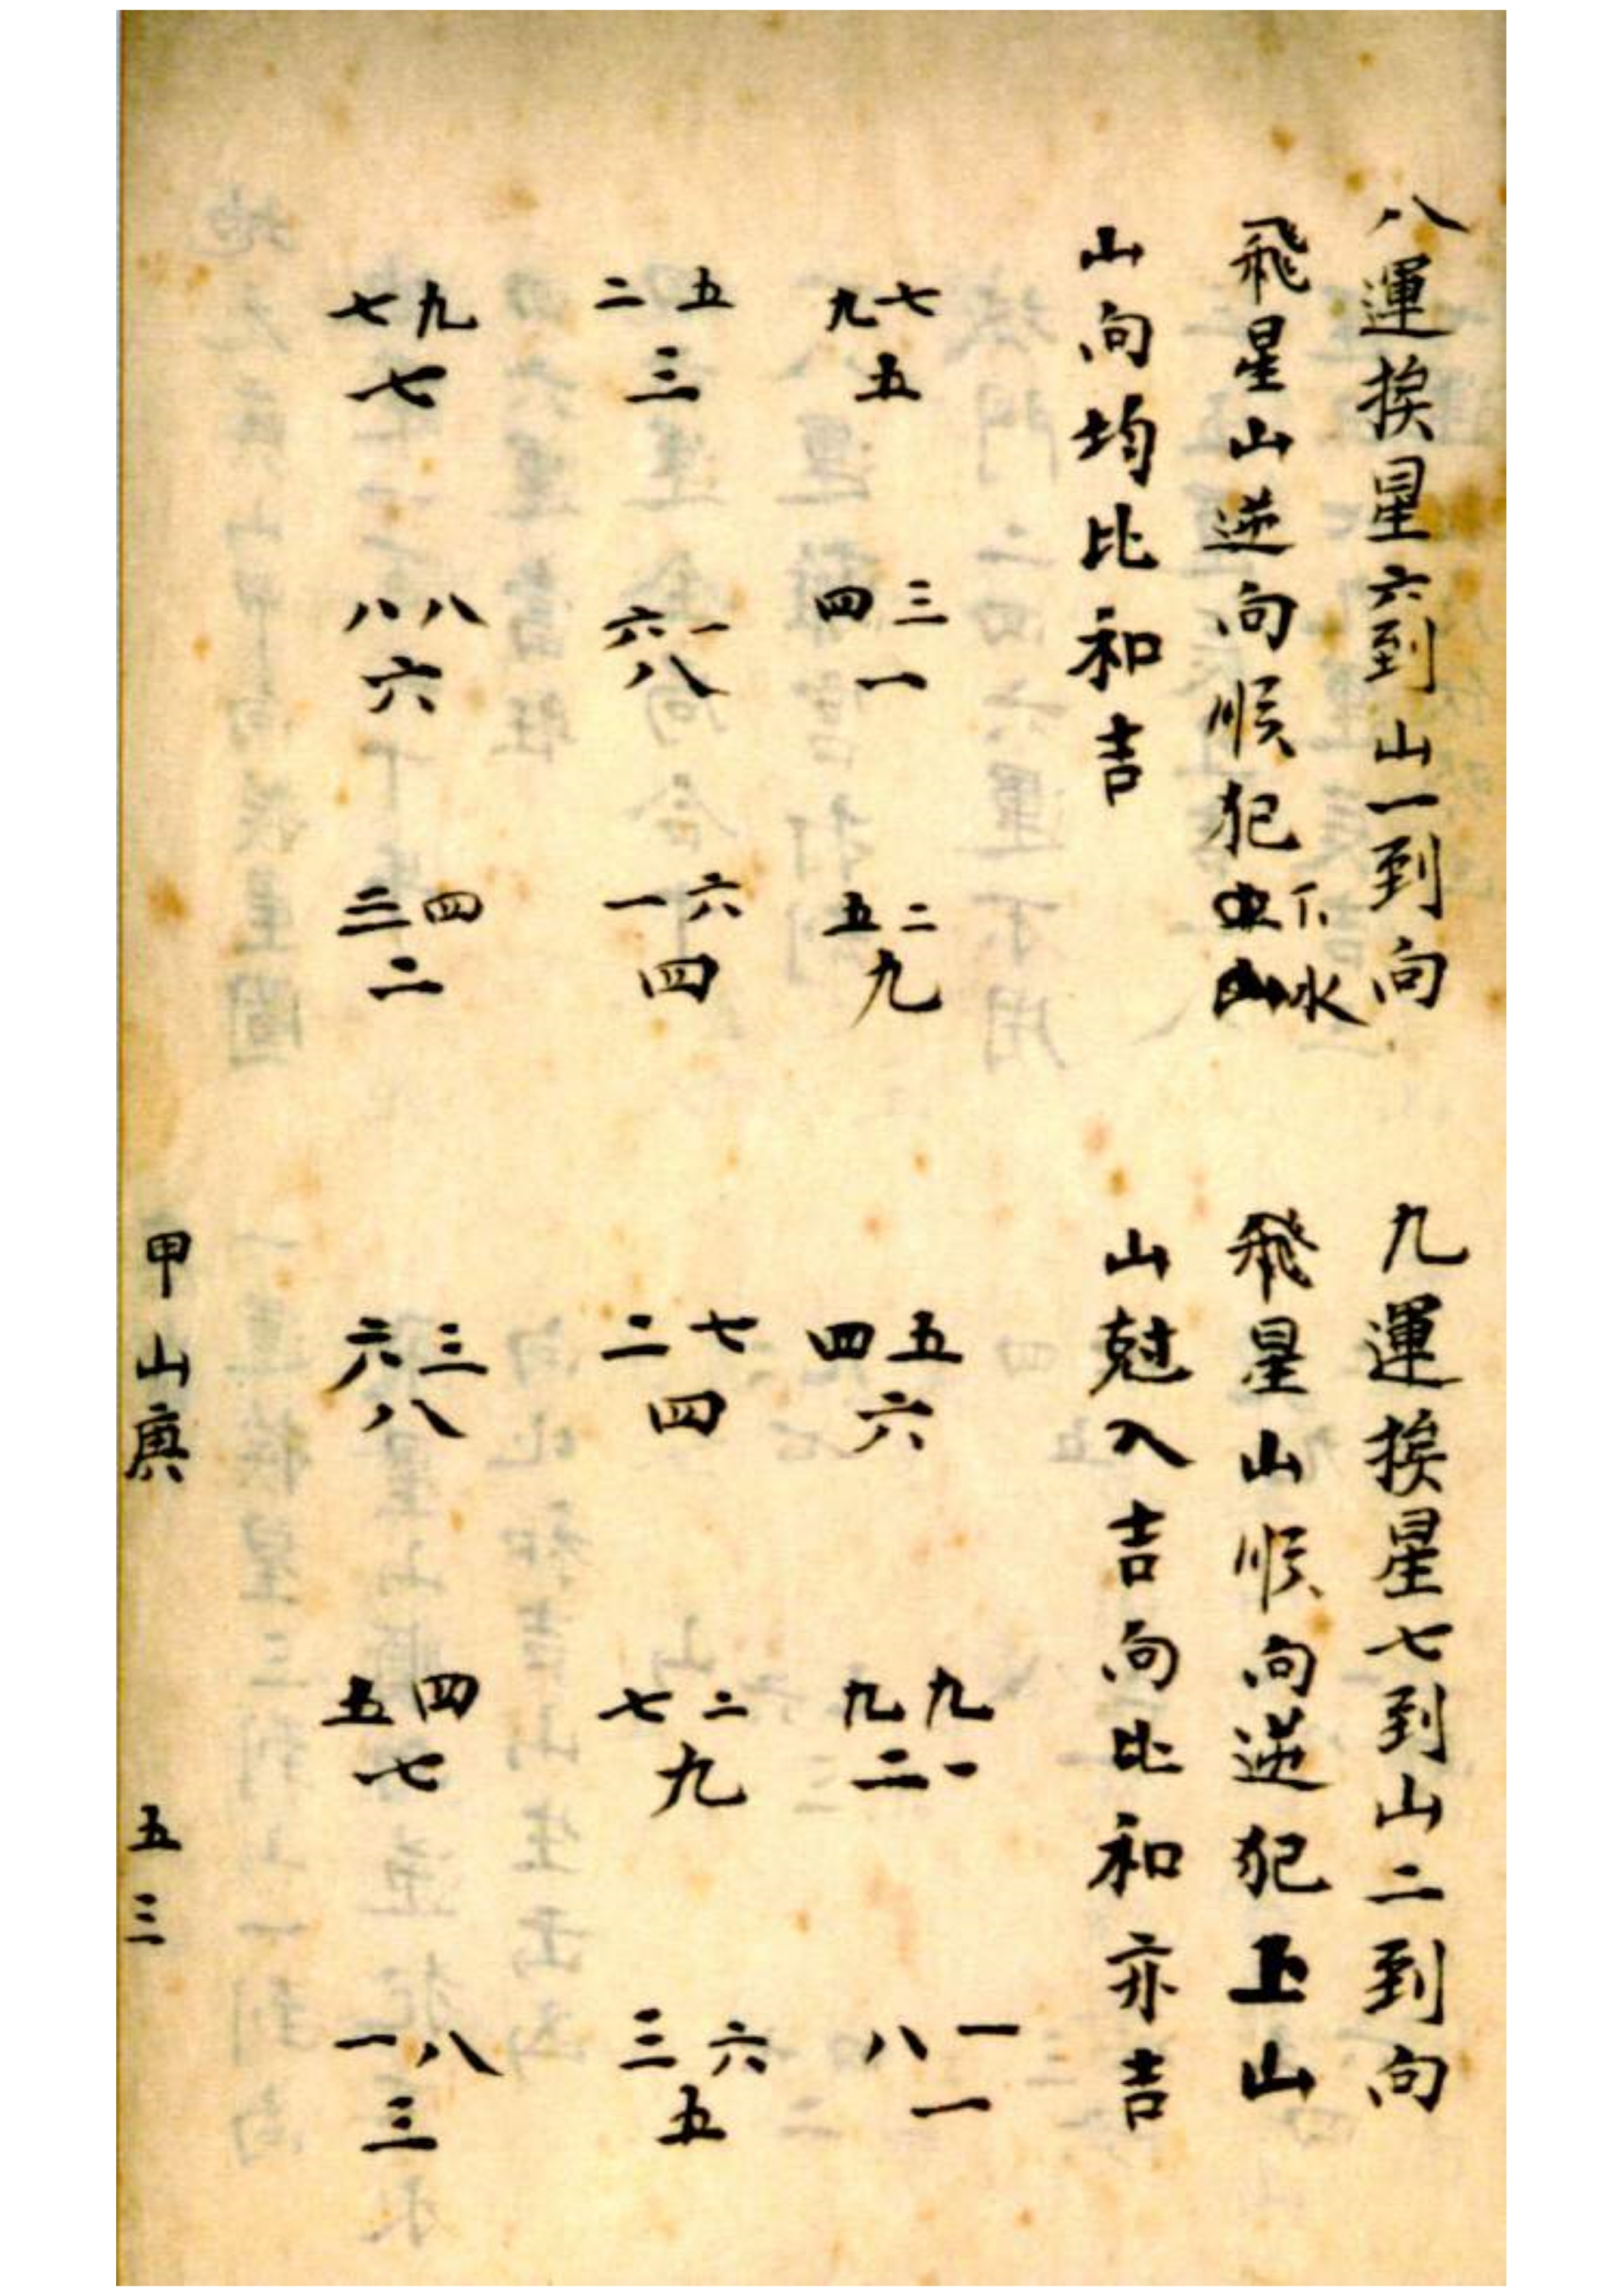 八運挨星六到山一到向
飛星山逆向順犯下水
山向均比和吉
九七
五
四三
一
五二
九
二五
三
六一
八
一六
四
七九
七
八八
六
三四
二
九運挨星七到山二到向
飛星山順向逆犯上山
山尅入吉向比和亦吉
四五
六
九九
二一
八一
一
二七
四
七二
九
三六
五
六三
八
五四
七
一八
三
甲山庚
五三